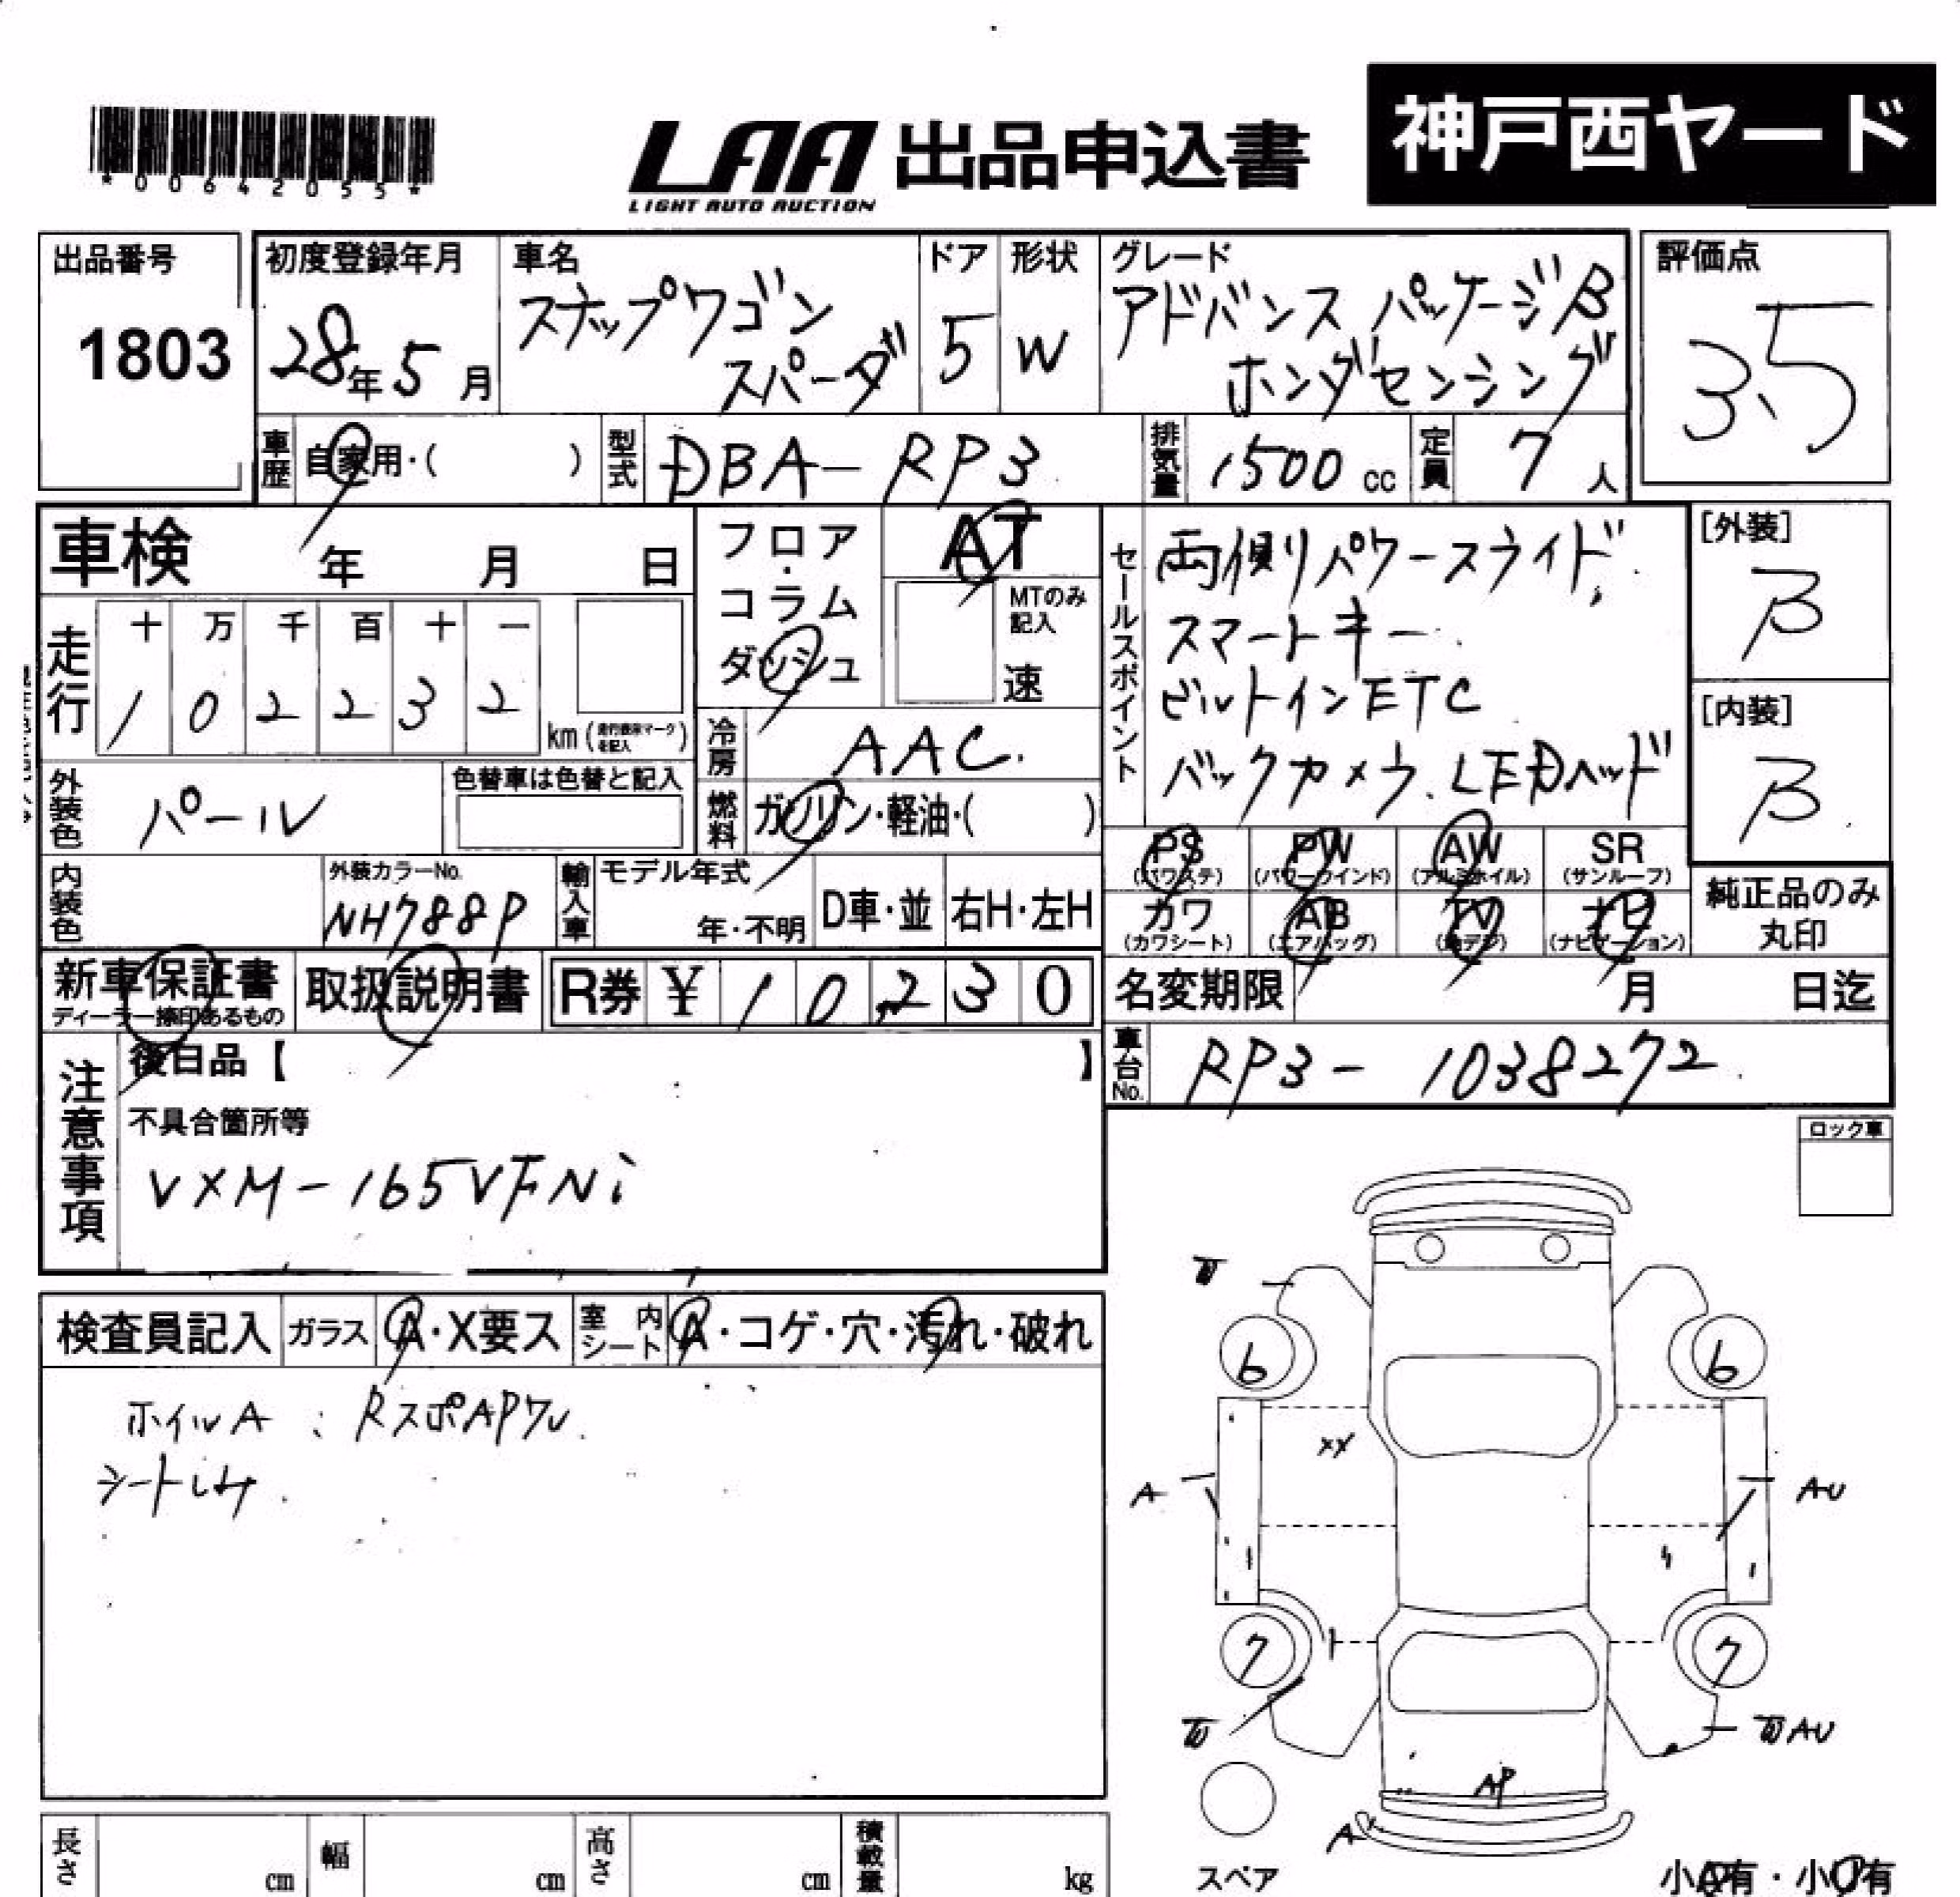 神戸西ヤード
*00642055*
LAA 出品申込書
LIGHT AUTO AUCTION
出品番号
1803
初度登録年月
28年5月
車名
ステップワゴン
スパーダ
ドア
5
形状
W
グレード
アドバンス パッケージβ
ホンダセンシング
評価点
3.5
車歴
自家用・( )
型式
DBA-RP3
排気量
1500 cc
定員
7 人
車検 年 月 日
走行
十 万 千 百 十 一
1 0 2 2 3 2
km(
)
フロア・コラム
ダッシュ
AT
MTのみ
記入
速
冷房
AAC.
燃料
ガソリン・軽油・( )
外装色
パール
色替車は色替と記入
内装色
外装カラーNo.
NH788P
輸入車
モデル年式
年・不明
D車・並
右H・左H
セールスポイント
両側パワースライド.
スマートキー.
ビルトインETC
バックカメラ. LEDヘッド
[外装]
B
[内装]
B
PS
(パワステ)
PW
(パワーウインド)
AW
(アルミホイル)
SR
(サンルーフ)
カワ
(カワシート)
AB
(エアバッグ)
TV
(地デジ)
ナビ
(ナビゲーション)
純正品のみ
丸印
新車保証書
ディーラー捺印あるもの
取扱説明書
R券 ¥ 10,230
名変期限 月 日迄
車台No.
RP3-1038272
注意事項
後日品【 】
不具合箇所等
VXM-165VFNi
ロック車
検査員記入
ガラス
A・X要ス
室内シート
A・コゲ・穴・汚れ・破れ
ホイルA : RスポAPワレ.
シートしみ.
6
6
XX
A
AU
7
7
AU
AP
A
スペア
小A有・小U有
長さ cm
幅 cm
高さ cm
積載量 kg